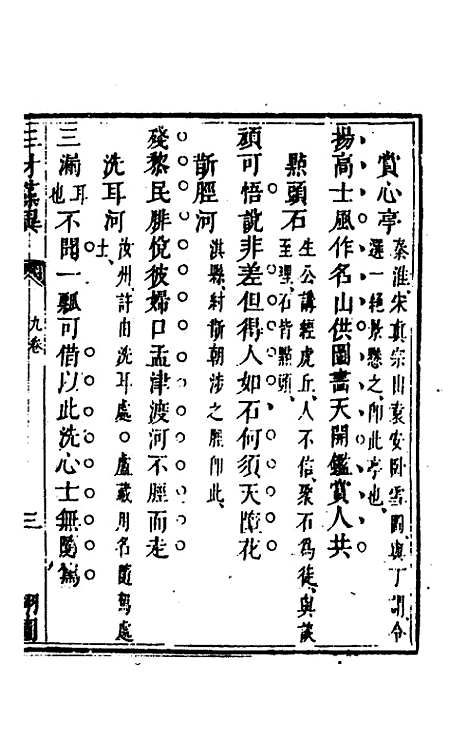 賞心亭 秦淮、宋真宗出袁安卧雪圖、與丁謂、令
選一絕景懸之、卽此亭也、
揚高士風作名山供圖畵天開鑑賞人共
點頭石 生公講經虎丘、人不信、聚石爲徒、與談
至理、石皆點頭、
頑可悟說非差但得人如石何須天墮花
斮脛河 淇縣、紂斮朝涉之脛卽此、
殘黎民剖悅彼婦口孟津渡河不脛而走
洗耳河 汝州、許由洗耳處○盧藏用名隨駕處
士、
三漏耳也不聞一瓢可借以此洗心士無隨駕
三才藻異
九卷
三